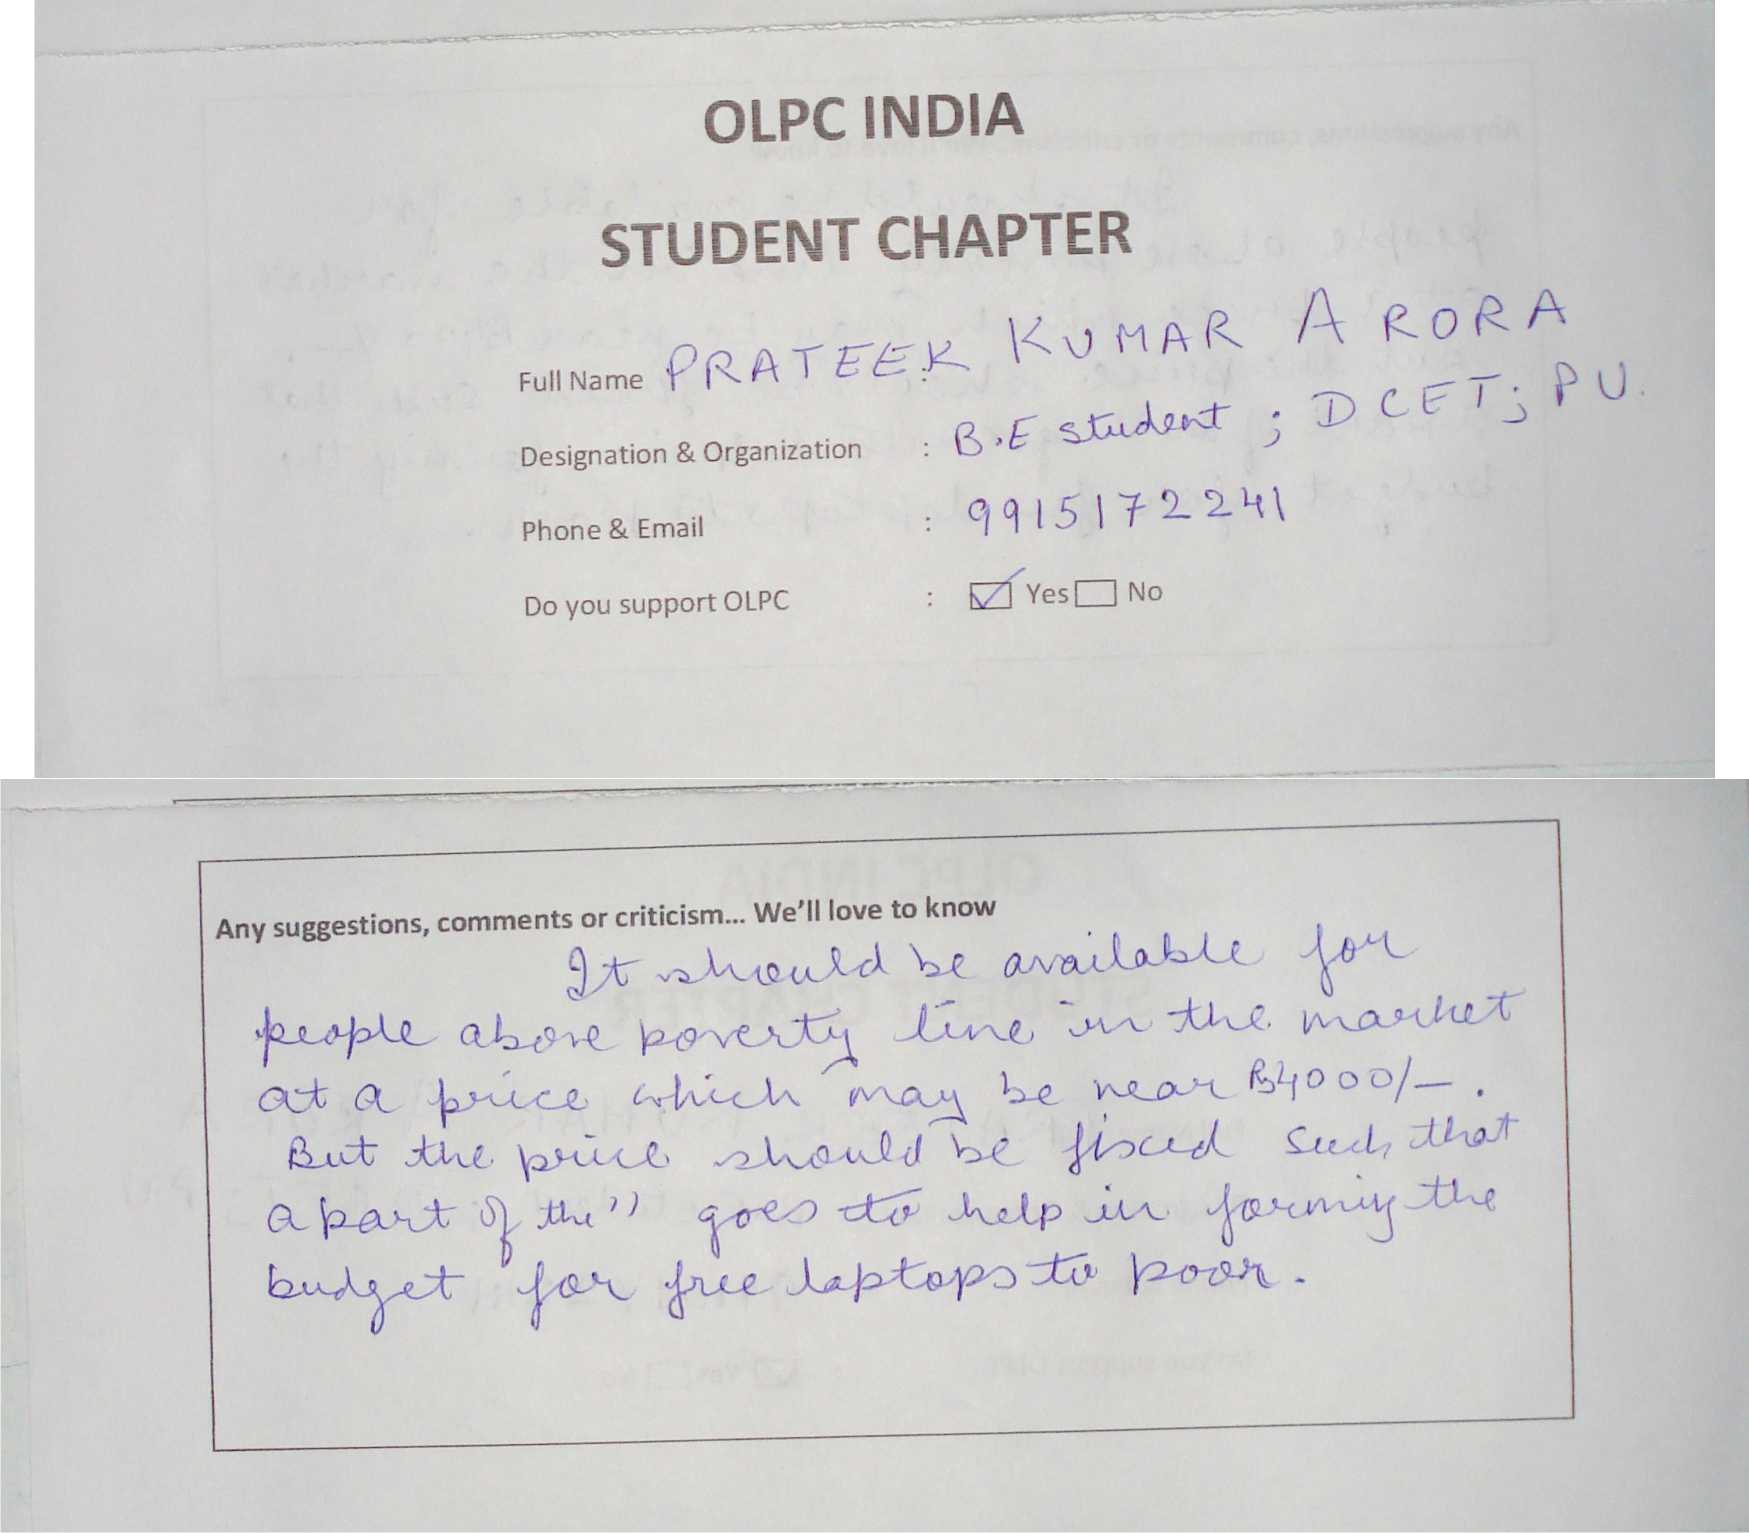 OLPC INDIA
STUDENT CHAPTER
Full Name : PRATEEK KUMAR ARORA
Designation & Organization : B.E student ; DCET; PU.
Phone & Email : 9915172241
Do you support OLPC : Yes No
Any suggestions, comments or criticism... We'll love to know
It should be available for
people above poverty line in the market
at a price which may be near Rs4000/-.
But the price should be fixed such that
a part of the " goes to help in forming the
budget for free laptops to poor.